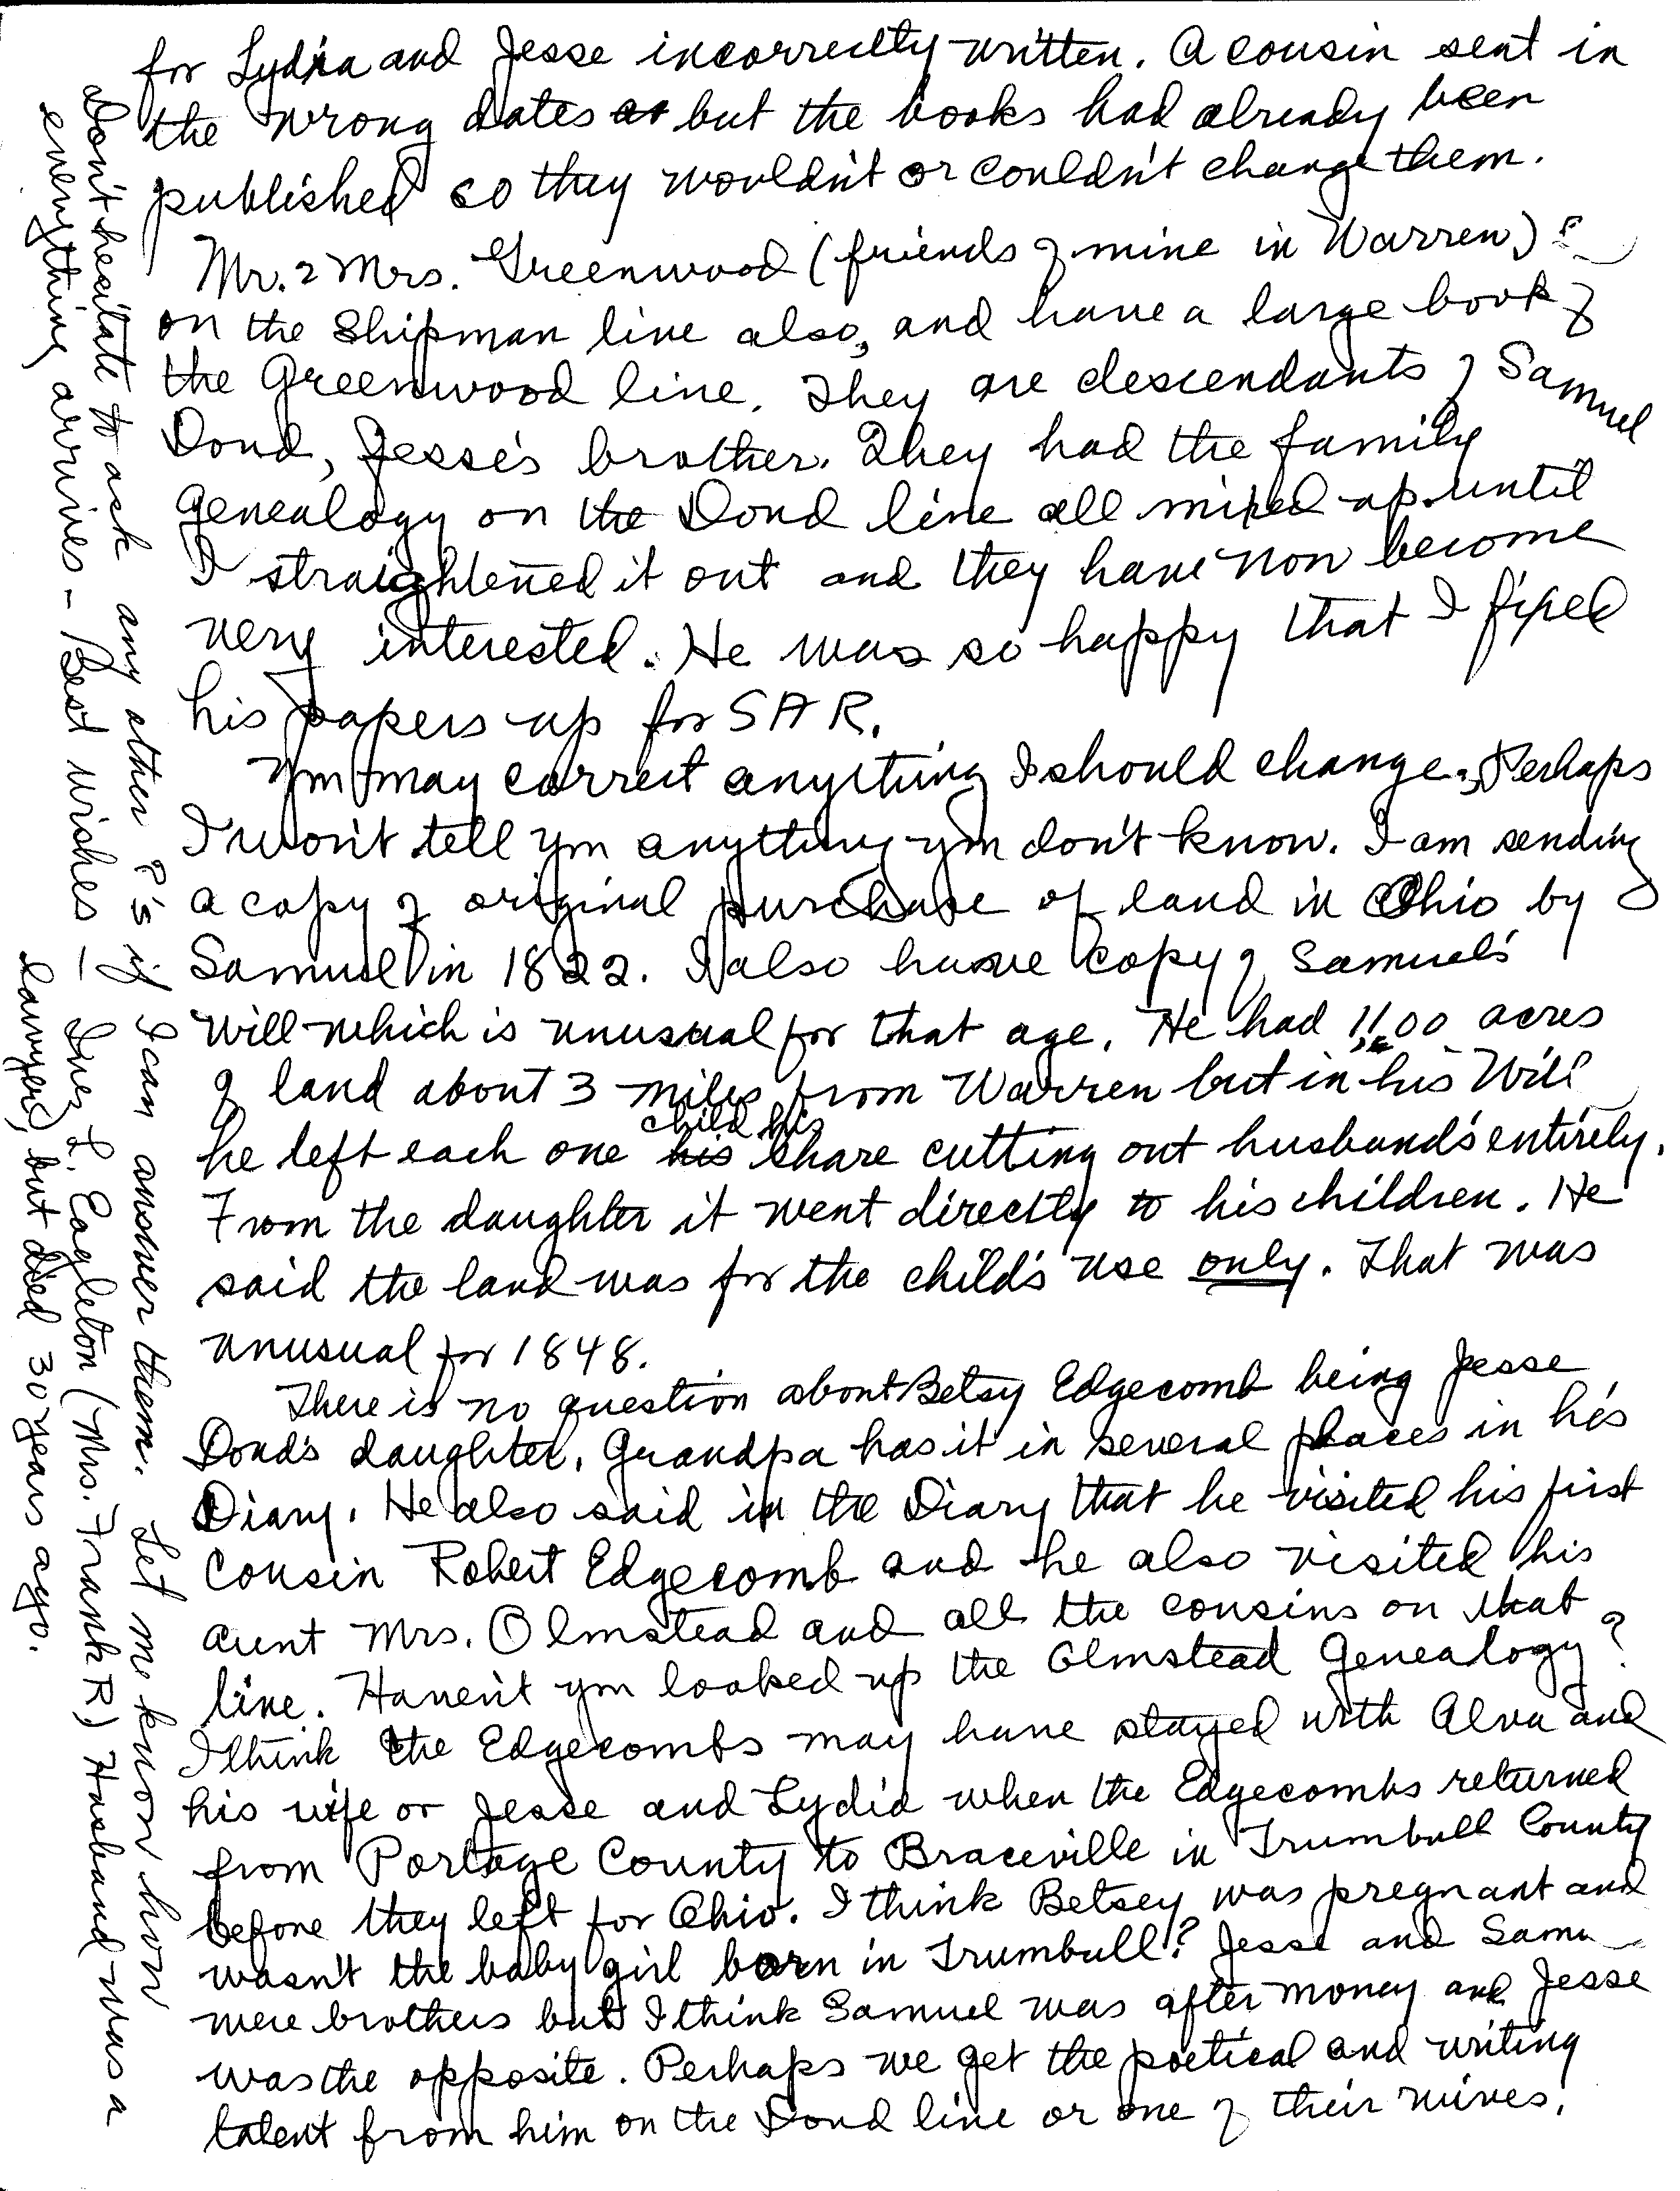 for Lydia and Jesse incorrectly written. A cousin sent in
the wrong dates as but the books had already been
published so they wouldn't or couldn't change them.
Mr. & Mrs. Greenwood (friends of mine in Warren)
on the Shipman line also, and have a large book of
the Greenwood line. They are descendants of Samuel
Doud, Jesse's brother. They had the family
genealogy on the Doud line all mixed up until
I straightened it out and they have now become
very interested. He was so happy that I fixed
his papers up for SAR.
You may correct anything I should change. Perhaps
I won't tell you anything you don't know. I am sending
a copy of original purchase of land in Ohio by
Samuel in 1822. I also have copy of Samuel's
Will which is unusual for that age. He had 1100 acres
of land about 3 miles from Warren but in his Will
he left each one his child his share cutting out husband's entirely.
From the daughter it went directly to his children. He
said the land was for the child's use only. That was
unusual for 1848.
There is no question about Betsy Edgecomb being Jesse
Doud's daughter. Grandpa has it in several places in his
Diary. He also said in the Diary that he visited his first
cousin Robert Edgecomb and he also visited his
aunt Mrs. Olmstead and all the cousins on that
line. Haven't you looked up the Olmstead Genealogy?
I think the Edgecombs may have stayed with Alva and
his wife or Jesse and Lydia when the Edgecombs returned
from Portage County to Braceville in Trumbull County
before they left for Ohio. I think Betsey was pregnant and
wasn't the baby girl born in Trumbull? Jesse and Samu
were brothers but I think Samuel was after money and Jesse
was the opposite. Perhaps we get the poetical and writing
talent from him on the Doud line or one of their wives.
Don't hesitate to ask any other ?'s if I can answer them. Let me know how
everything arrives - Best wishes - Inez L. Eagleton (Mrs. Frank R.) Husband was a
lawyer, but died 30 years ago.